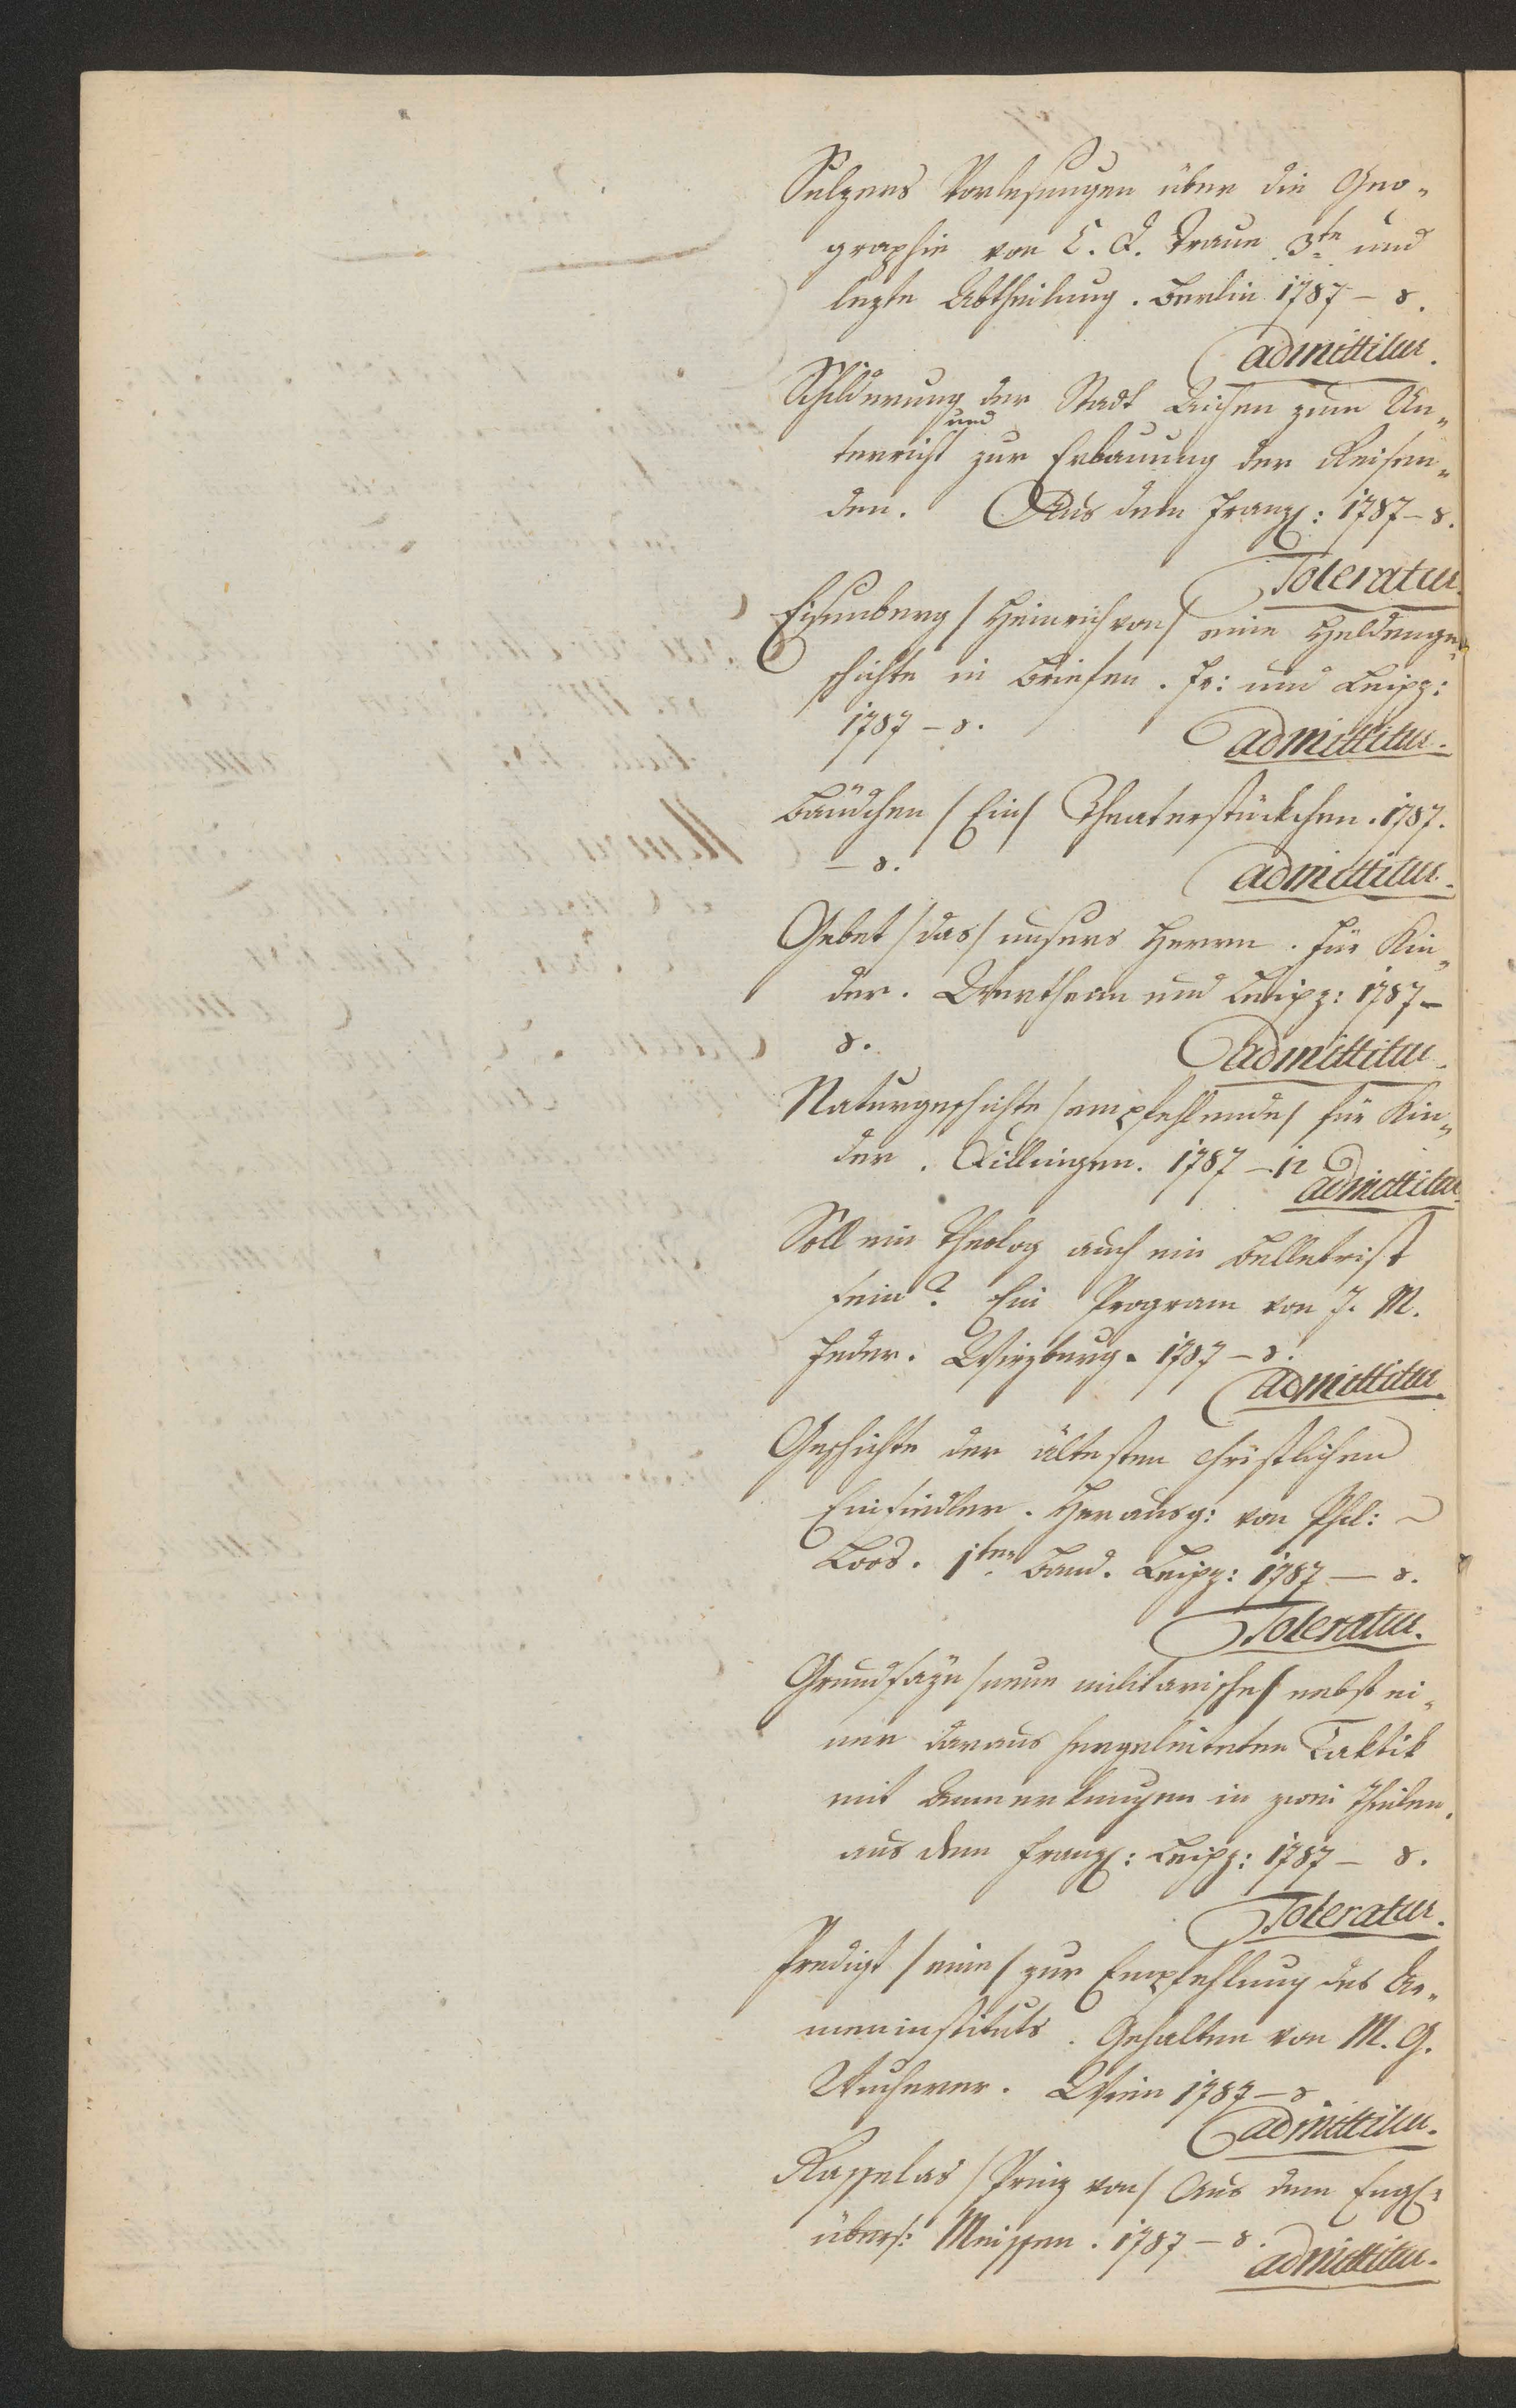 Sulzers Vorlesungen über die Geo-
graphie von C. D. Traue 3te und
lezte Abtheilung. Berlin 1787 – 8.
admittitur.
Schilderung der Stadt zum Un-
und
terricht zur Erbauung der Reisen-
den. Aus dem Franz: 1787 – 8.
Toleratur.
Eisenberg /Heinrich von/ eine Heldenge-
schichte in Briefen. Fr: und Leipz:
1787 – 8.
admittitur.
Bäudchen /Ein/ Theaterstückchen. 1787.
– 8.
admittitur.
Gebet /das/ unsers Herrn. Für Kin-
der. Wertheim und Leipz: 1787 –
8.
admittitur.
Naturgeschichte /empfehlende/ für Kin-
der. Dillingen. 1787 – 12
admittitur.
Soll ein Theolog auch ein Belletrist
sein? Ein Program von J. M.
Feder. Wirzburg. 1787 – 8.
admittitur.
Geschichte der ältesten christlichen
Einsiedler. Herausg: von Phil:
Loos. 1ter Band. Leipz: 1787 – 8.
Toleratur.
Grundsäze /neue militarische/ nebst ei-
ner daraus hergeleiteten Taktik
mit Anmerkungen in zwei Theilen.
aus dem Franz: Leipz: 1787 – 8.
Toleratur.
Predigt /eine/ zur Empfehlung des Ar-
meninstituts. Gehalten von M. G.
Wucherer. Wien 1787 – 8
admittitur.
Rasselas /Prinz von/ Aus dem Engl:
übers: Meissen. 1787 – 8.
admittitur.